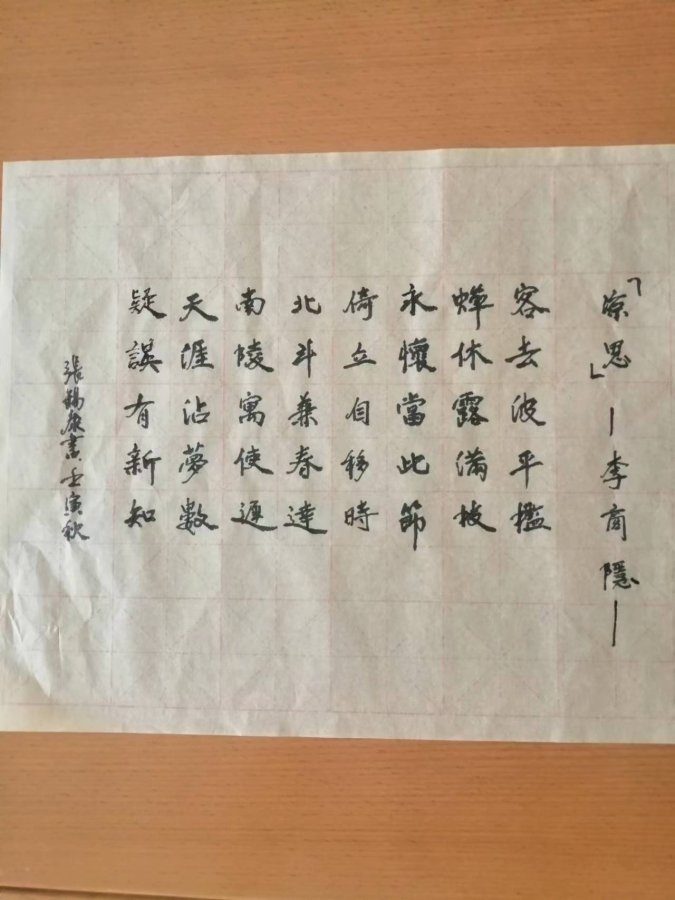 「涼思」—李商隱—
客去波平檻
蟬休露滿枝
永懷當此節
倚立自移時
北斗兼春遠
南陵寓使遲
天涯沾夢數
疑誤有新知
張錫康書 壬寅秋